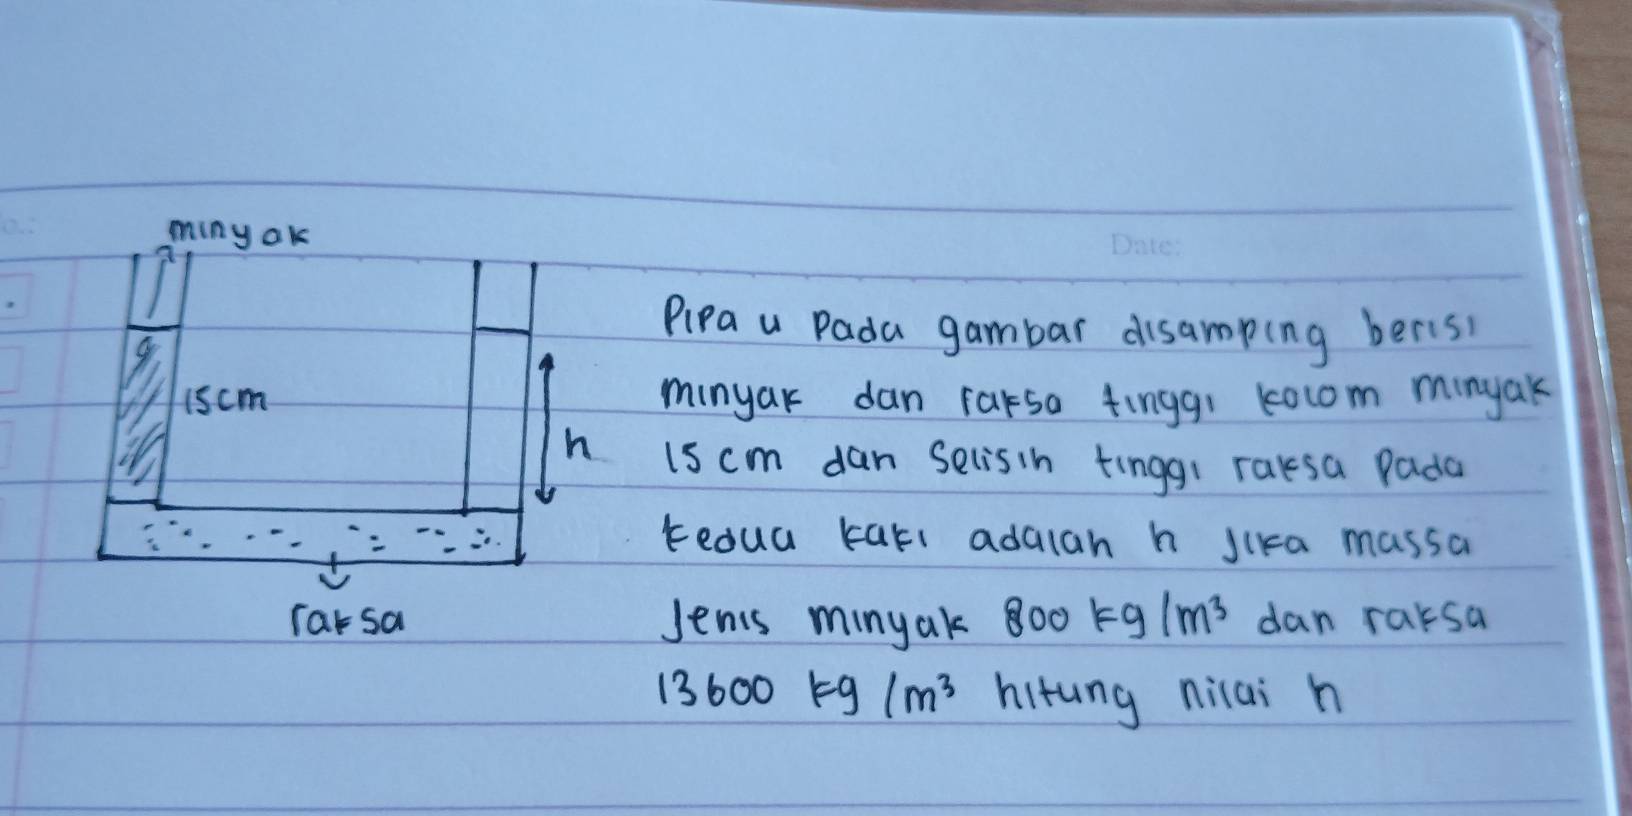 minyak
15cm
h
raksa
Date:
Pipa u pada gambar disamping berisi
minyak dan raksa tinggi kolom minyak
15 cm dan selisih tinggi raksa pada
kedua kaki adalah h jika massa
Jenis minyak 800 kg/m³ dan raksa
13600 kg/m³ hitung nilai h